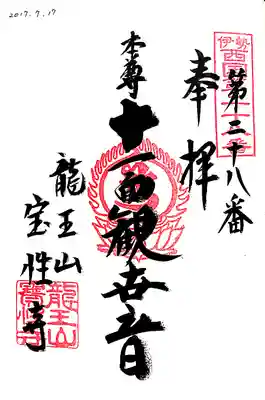 2017.7.17
伊勢
西国
第二十八番
奉拝
本尊
十一面観世音
龍王山
宝性寺
龍王山
寶性寺